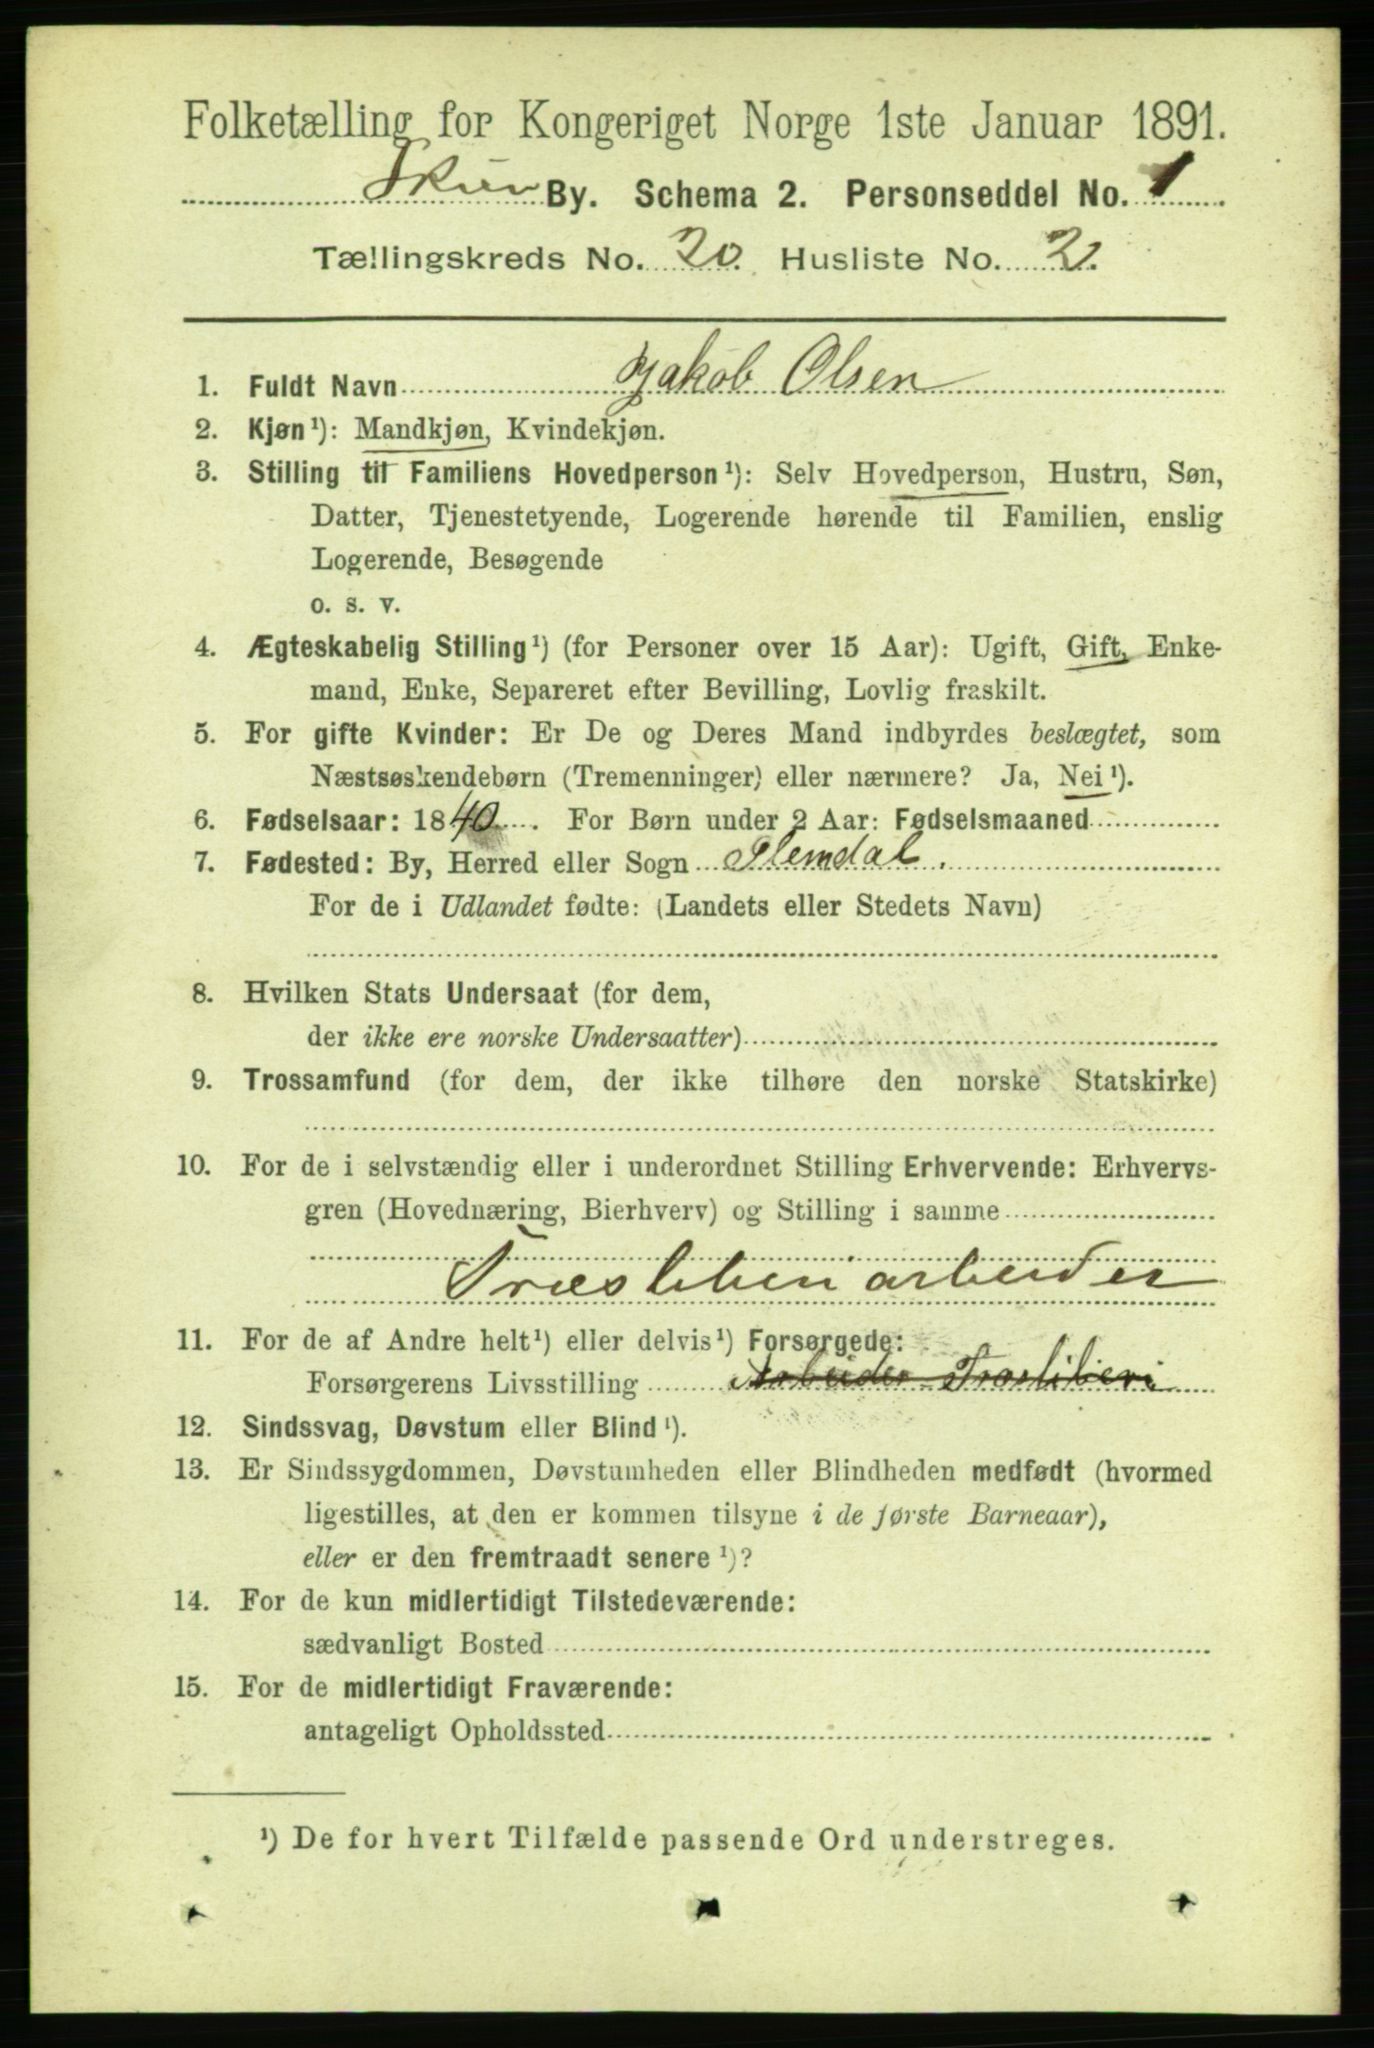 Folketælling for Kongeriget Norge 1ste Januar 1891.
Skien By. Schema 2. Personseddel No. 1
Tællingskreds No. 20. Husliste No. 2.
1. Fuldt Navn Jakob Olsen
2. Kjøn¹): Mandkjøn, Kvindekjøn.
3. Stilling til Familiens Hovedperson¹): Selv Hovedperson, Hustru, Søn,
Datter, Tjenestetyende, Logerende hørende til Familien, enslig
Logerende, Besøgende
o. s. v.
4. Ægteskabelig Stilling¹) (for Personer over 15 Aar): Ugift, Gift, Enke-
mand, Enke, Separeret efter Bevilling, Lovlig fraskilt.
5. For gifte Kvinder: Er De og Deres Mand indbyrdes beslægtet, som
Næstsøskendebørn (Tremenninger) eller nærmere? Ja, Nei¹).
6. Fødselsaar: 1840. For Børn under 2 Aar: Fødselsmaaned
7. Fødested: By, Herred eller Sogn Slemdal.
For de i Udlandet fødte: (Landets eller Stedets Navn)
8. Hvilken Stats Undersaat (for dem,
der ikke ere norske Undersaatter)
9. Trossamfund (for dem, der ikke tilhøre den norske Statskirke)
10. For de i selvstændig eller i underordnet Stilling Erhvervende: Erhvervs-
gren (Hovednæring, Bierhverv) og Stilling i samme
Træsliberiarbeider
11. For de af Andre helt¹) eller delvis¹) Forsørgede:
Forsørgerens Livsstilling Arbeider Træsliberi
12. Sindssvag, Døvstum eller Blind¹).
13. Er Sindssygdommen, Døvstumheden eller Blindheden medfødt (hvormed
ligestilles, at den er kommen tilsyne i de første Barneaar),
eller er den fremtraadt senere¹)?
14. For de kun midlertidigt Tilstedeværende:
sædvanligt Bosted
15. For de midlertidigt Fraværende:
antageligt Opholdssted
¹) De for hvert Tilfælde passende Ord understreges.